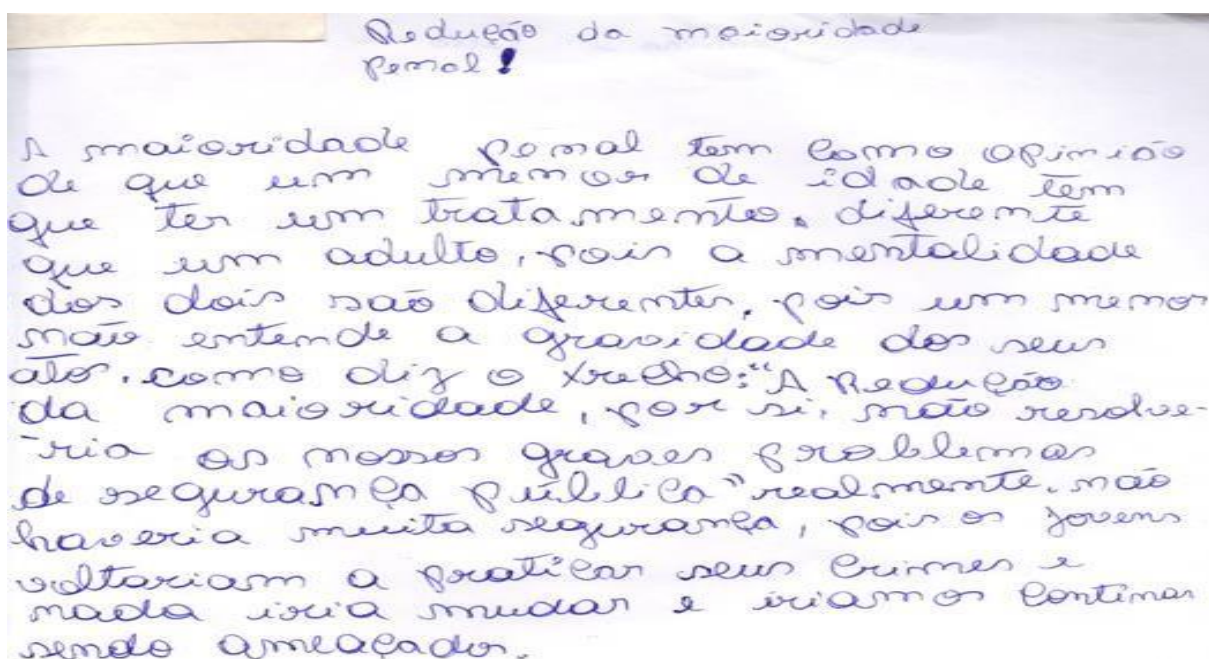 Redução da maioridade
Penal!
A maioridade penal tem como opinião
de que um menor de idade tem
que ter um tratamento, diferente
que um adulto, pois a mentalidade
dos dois saõ diferentes, pois um menor
não entende a gravidade dos seus
atos. como diz o trecho: "A Redução
da maioridade, por si, não resolve-
-ria os nossos graves problemas
de segurança pública" realmente, não
haveria muita segurança, pois os jovens
voltariam a praticar seus crimes e
nada iria mudar e iriamos continar
sendo ameaçados.